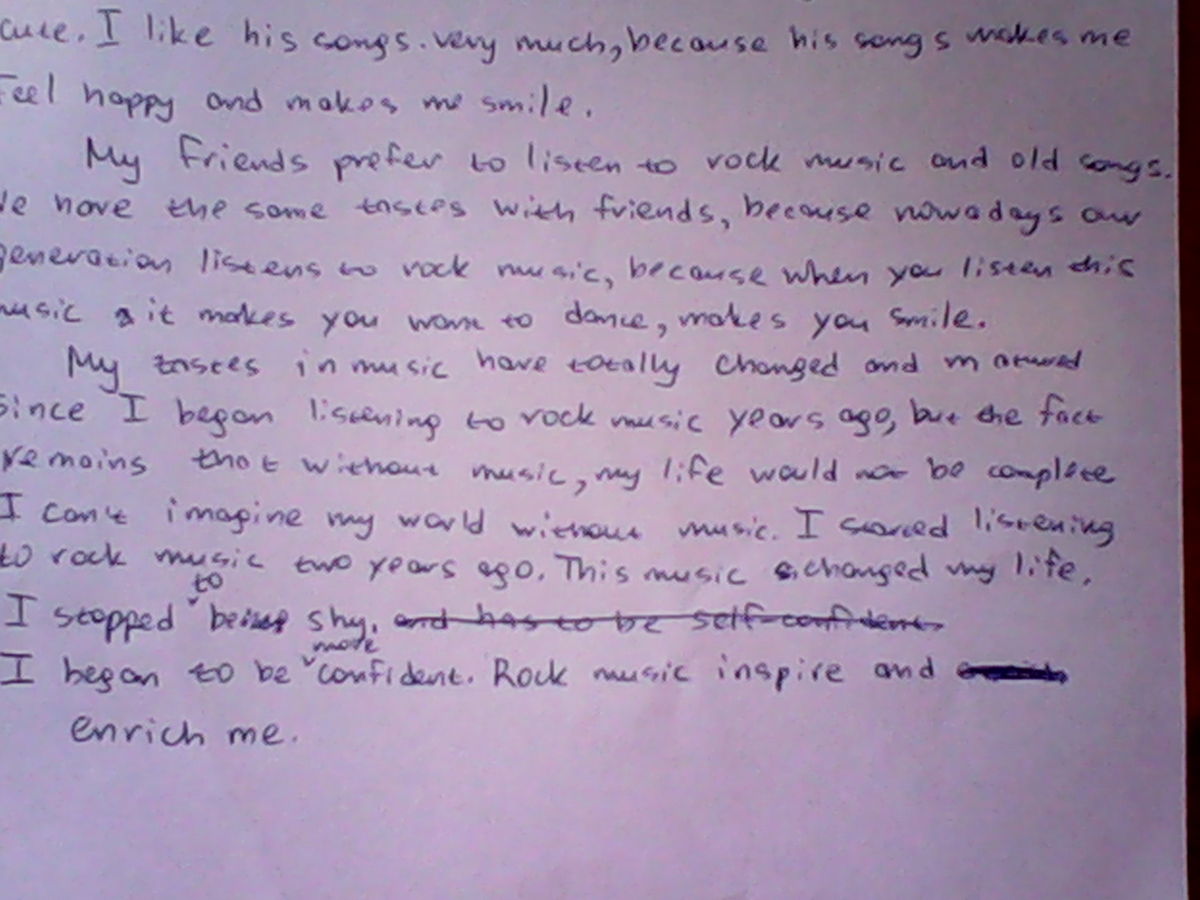 cute. I like his songs very much, because his songs makes me
feel happy and makes me smile.
My friends prefer to listen to rock music and old songs.
We have the same tastes with friends, because nowadays our
generation listens to rock music, because when you listen this
music it makes you want to dance, makes you smile.
My tastes in music have totally changed and matured
since I began listening to rock music years ago, but the fact
remains that without music, my life would not be complete
I can't imagine my world without music. I started listening
to rock music two years ago. This music changed my life.
I stopped to be shy. and has to be self-confident.
I began to be more confident. Rock music inspire and
enrich me.